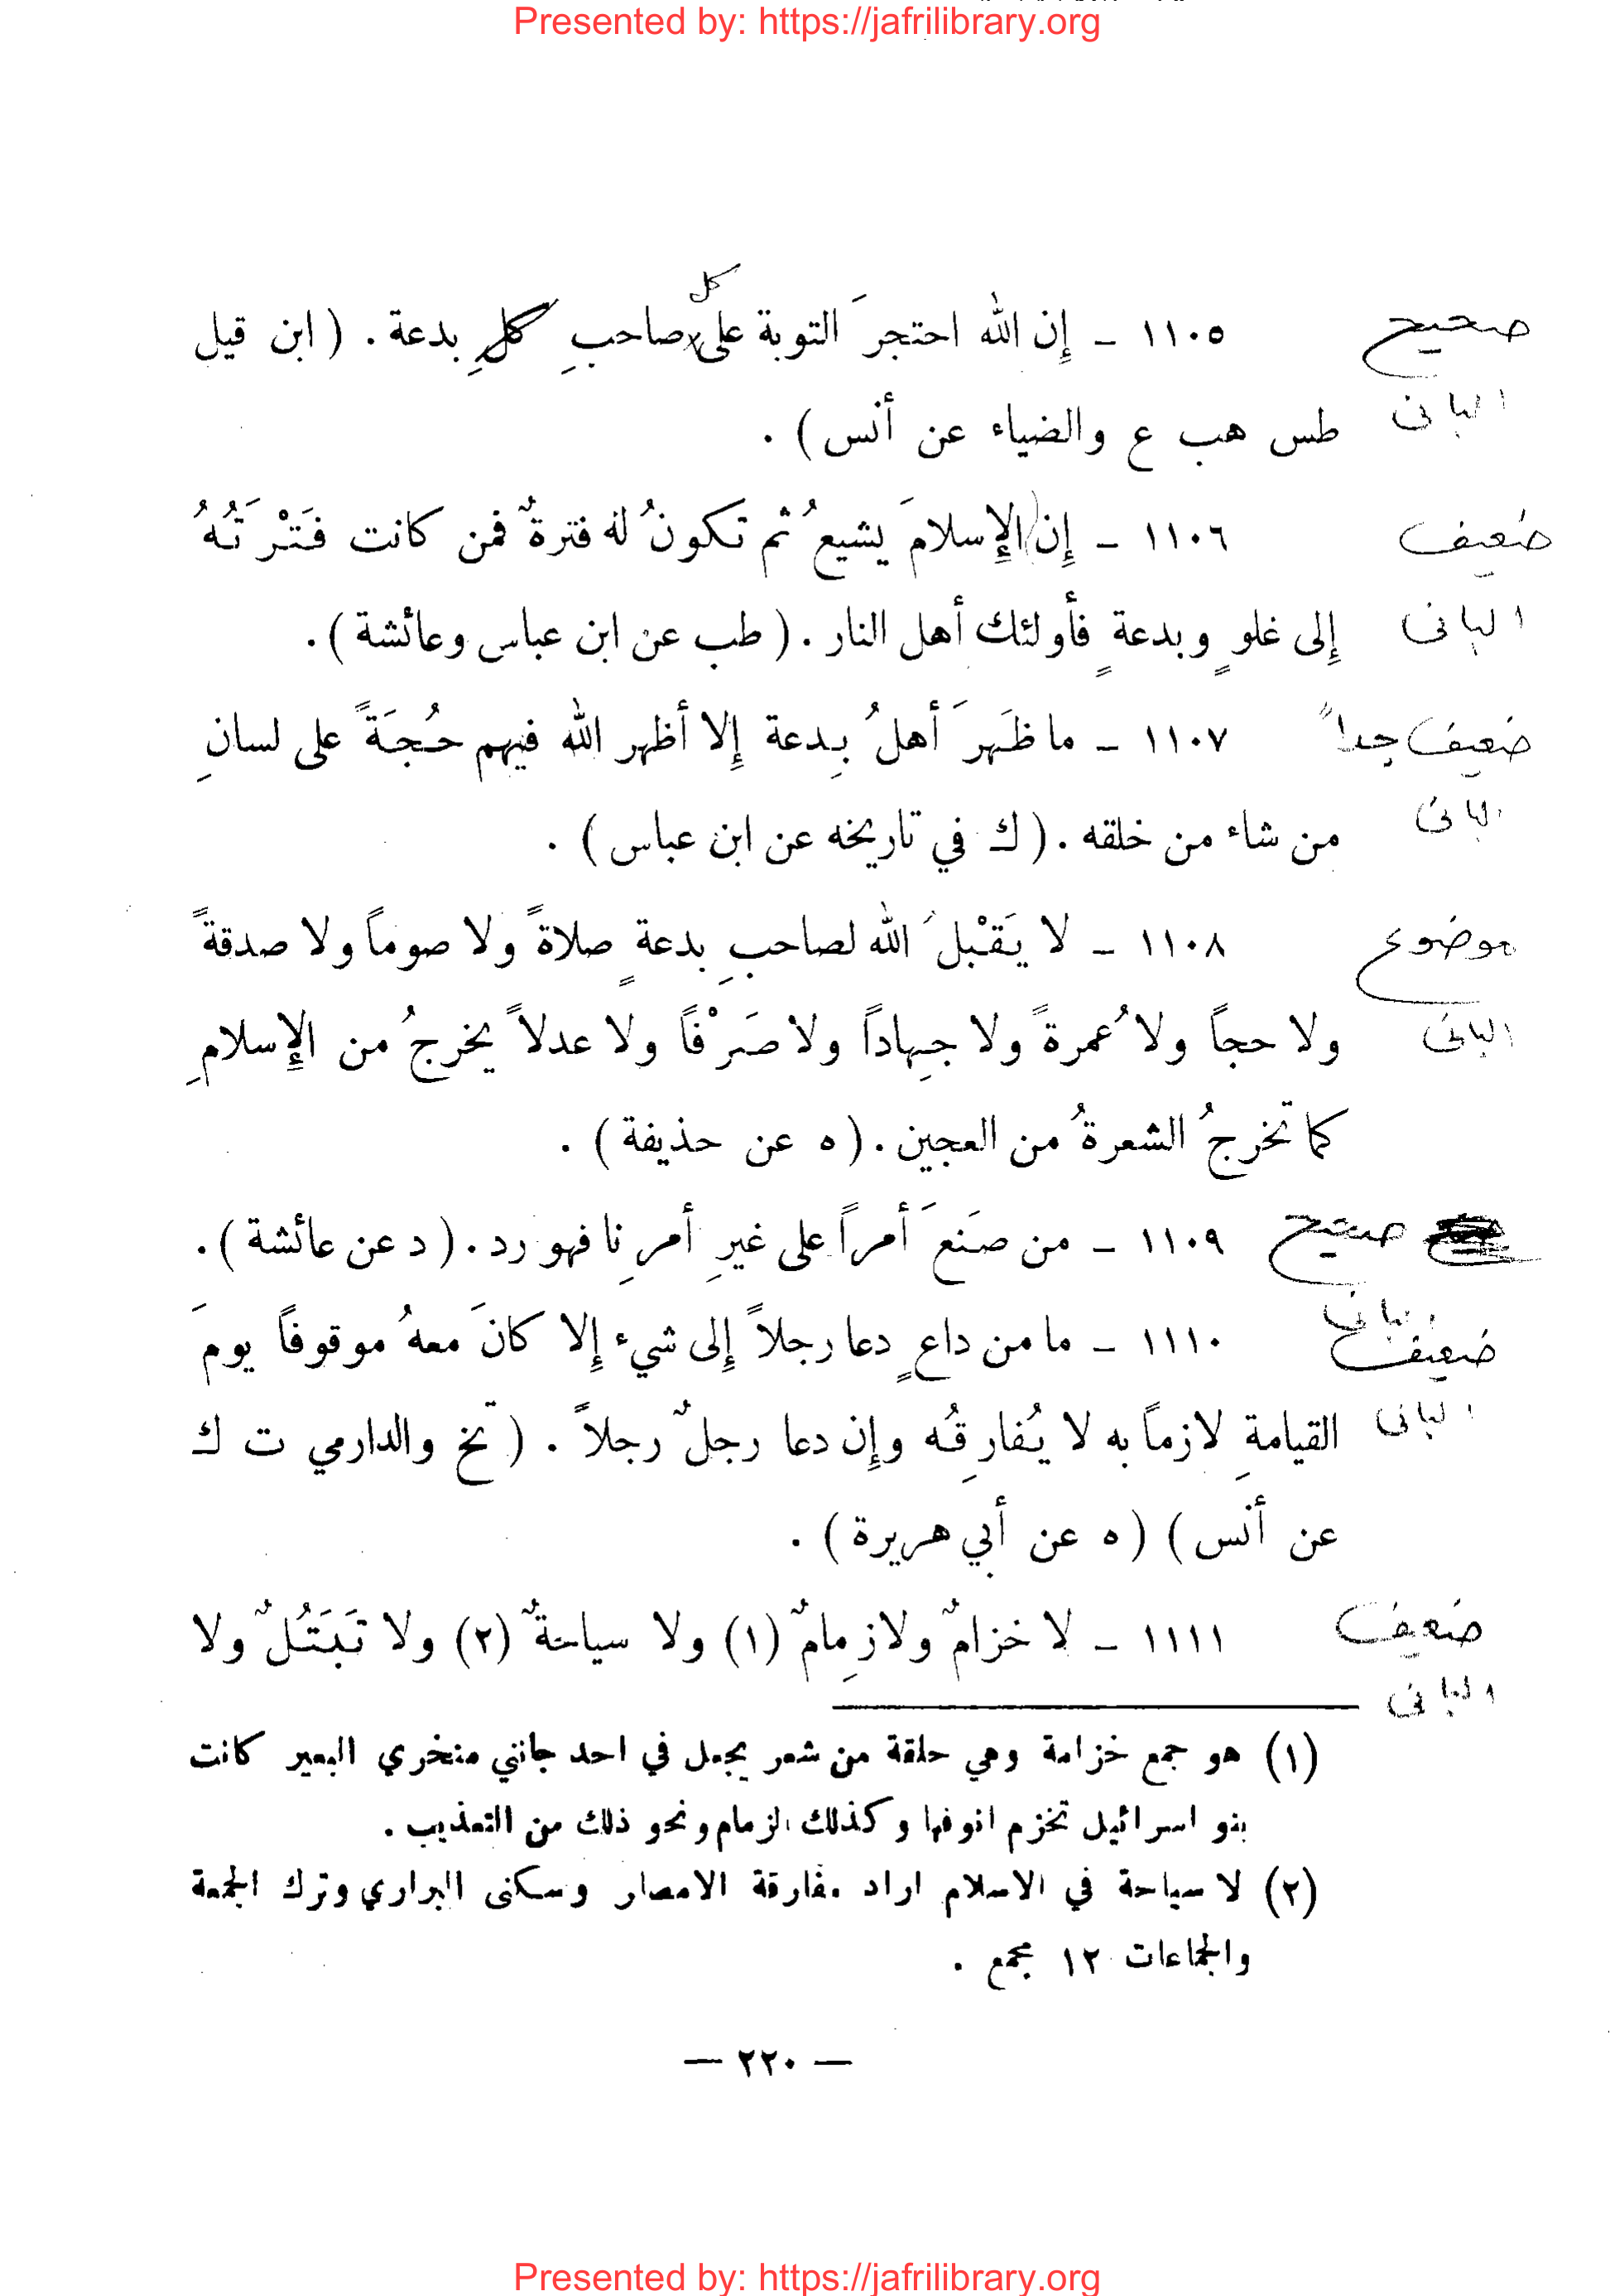 Presented by: https://jafrilibrary.org
كل
صحيح ١١٠٥ ـ إِن الله احتجرَ التوبة على صاحبِ كلِ بدعة . ( ابن قيل
البانى طس هب ع والضياء عن أنس ) .
ضعيف ١١٠٦ ـ إِن الإِسلامَ يشيعُ ثم تكونُ له فترةٌ فمن كانت فَتْرَتُهُ
البانى إِلى غلوٍ وبدعةٍ فأولئك أهل النار . ( طب عن ابن عباس وعائشة ) .
ضعيف جداً ١١٠٧ ـ ما ظَهرَ أهلُ بِدعة إِلا أظهر الله فيهم حُجَةً على لسانِ
البانى من شاء من خلقه . ( ك في تاريخه عن ابن عباس ) .
موضوع ١١٠٨ ـ لا يَقْبلُ الله لصاحبِ بدعةٍ صلاةً ولا صوماً ولا صدقةً
البانى ولا حجاً ولا عُمرةً ولا جِهاداً ولا صَرْفاً ولا عدلاً يخرجُ من الإِسلامِ
كما تخرجُ الشعرةُ من العجين . ( ه عن حذيفة ) .
صحيح ١١٠٩ ـ من صنَعَ أمراً على غيرِ أمرِنا فهو رد . ( د عن عائشة ) .
البانى
ضعيف ١١١٠ ـ ما من داعٍ دعا رجلاً إِلى شيء إِلا كانَ معهُ موقوفاً يومَ
البانى القيامةِ لازماً به لا يُفارِقُه وإِن دعا رجلٌ رجلاً . ( تخ والدارمي ت ك
عن أنس ) ( ه عن أبي هريرة ) .
ضعيف ١١١١ ـ لا خزامٌ ولا زِمامٌ (١) ولا سياحةٌ (٢) ولا تَبَتُلٌ ولا
البانى
(١) هو جمع خزامة وهي حلقة من شعر يجعل في احد جانبي منخري البعير كانت
بنو اسرائيل تخزم انوفها وكذلك الزمام ونحو ذلك من التعذيب .
(٢) لا سياحة في الاسلام اراد مفارقة الامصار وسكنى البراري وترك الجمعة
والجماعات ١٢ مجمع .
— ٢٢٠ —
Presented by: https://jafrilibrary.org